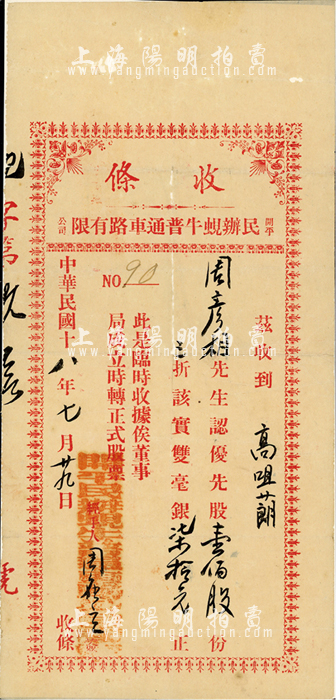 上海陽明拍賣
www.yangmingauction.com
收條
開平民辦蜆牛普通車路有限公司
茲收到 高咀蓢
周彥 先生認優先股壹佰股份
折該實雙毫銀柒拾元正
NO 90
此是臨時收據俟董事
局成立時轉正式股票
中華民國十八年七月廿九日
經手人 周 收條
上海陽明拍賣
www.yangmingauction.com
上海陽明拍賣
www.yangmingauction.com